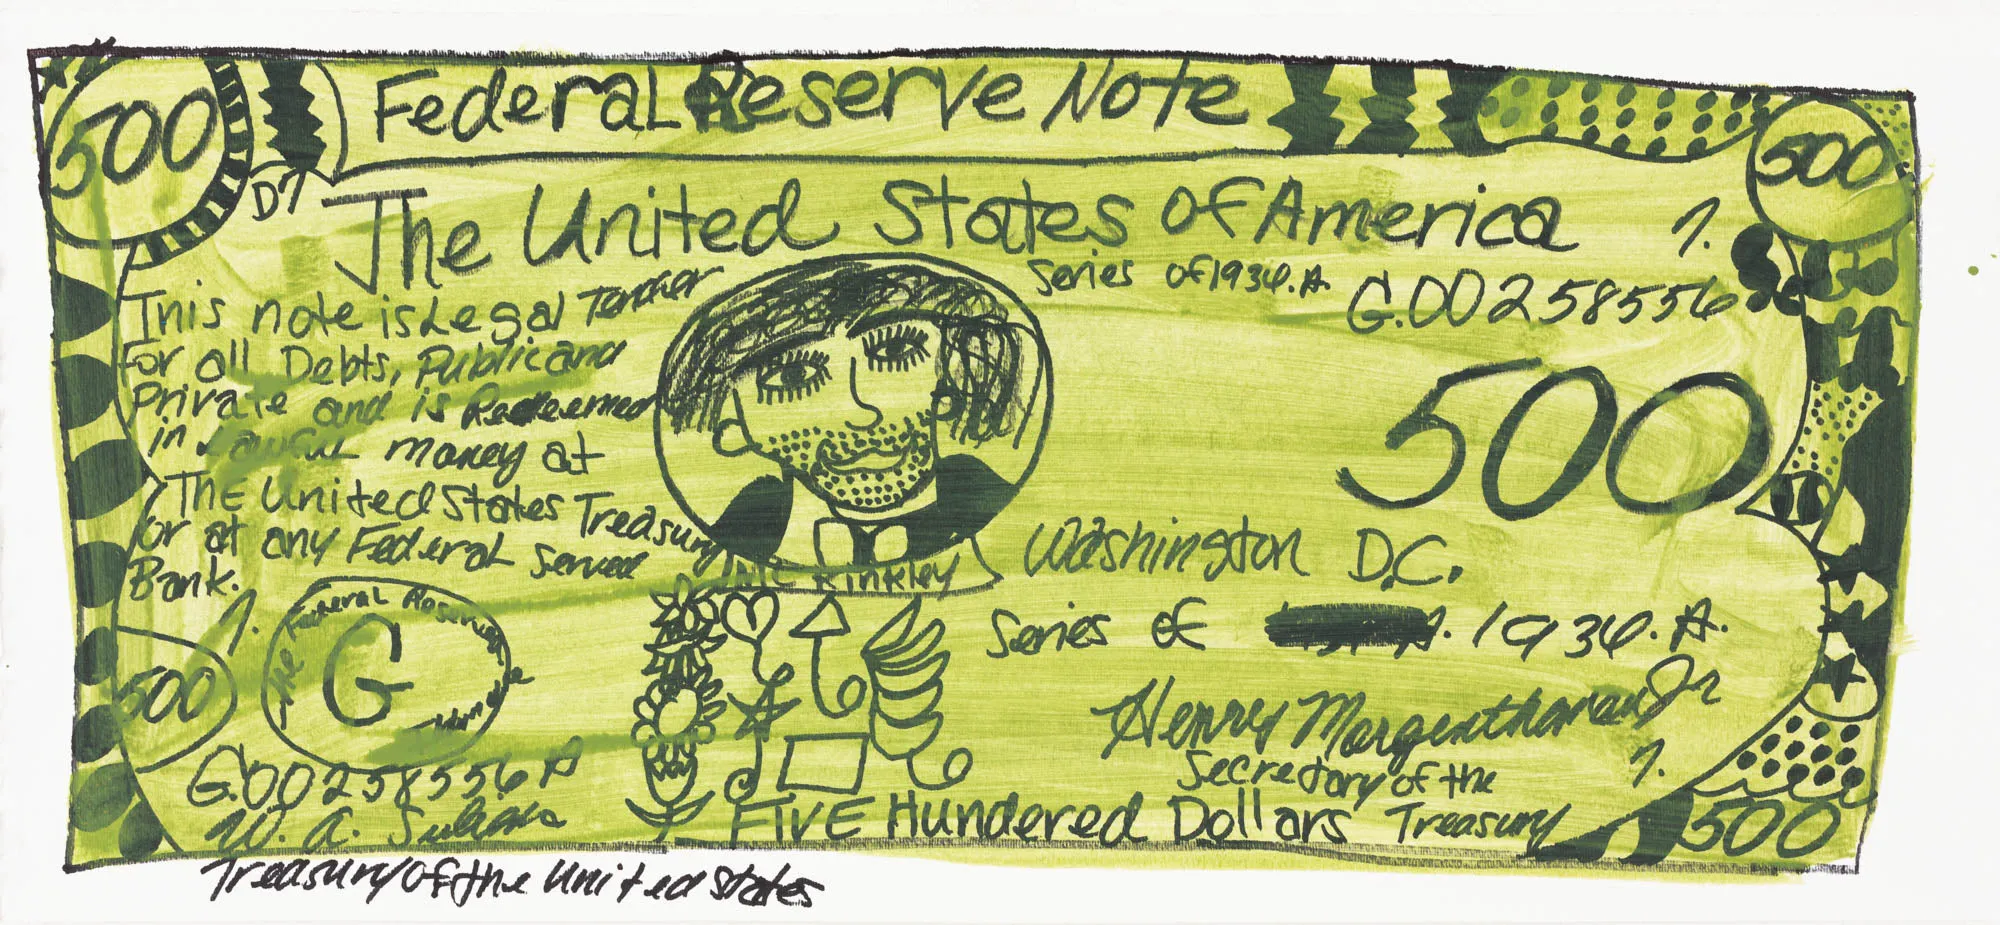 500
Federal Reserve Note
500
D7
The United States of America
7.
Series of 1934.A.
G.00258556
This note is Legal Tender
For all Debts, Public and
Private and is Redeemed
in Lawful money at
The United States Treasury
or at any Federal Served
Bank.
500
Mc Kinkley
Washington D.C.
7.
The Federal Reserve
G
Series of 1934.A.
500
Henry Morgenthau Jr
7.
Secretary of the
Treasury
G.00258556 A
W. A. Julian
FivE Hundered Dollars
500
Treasury of the United States